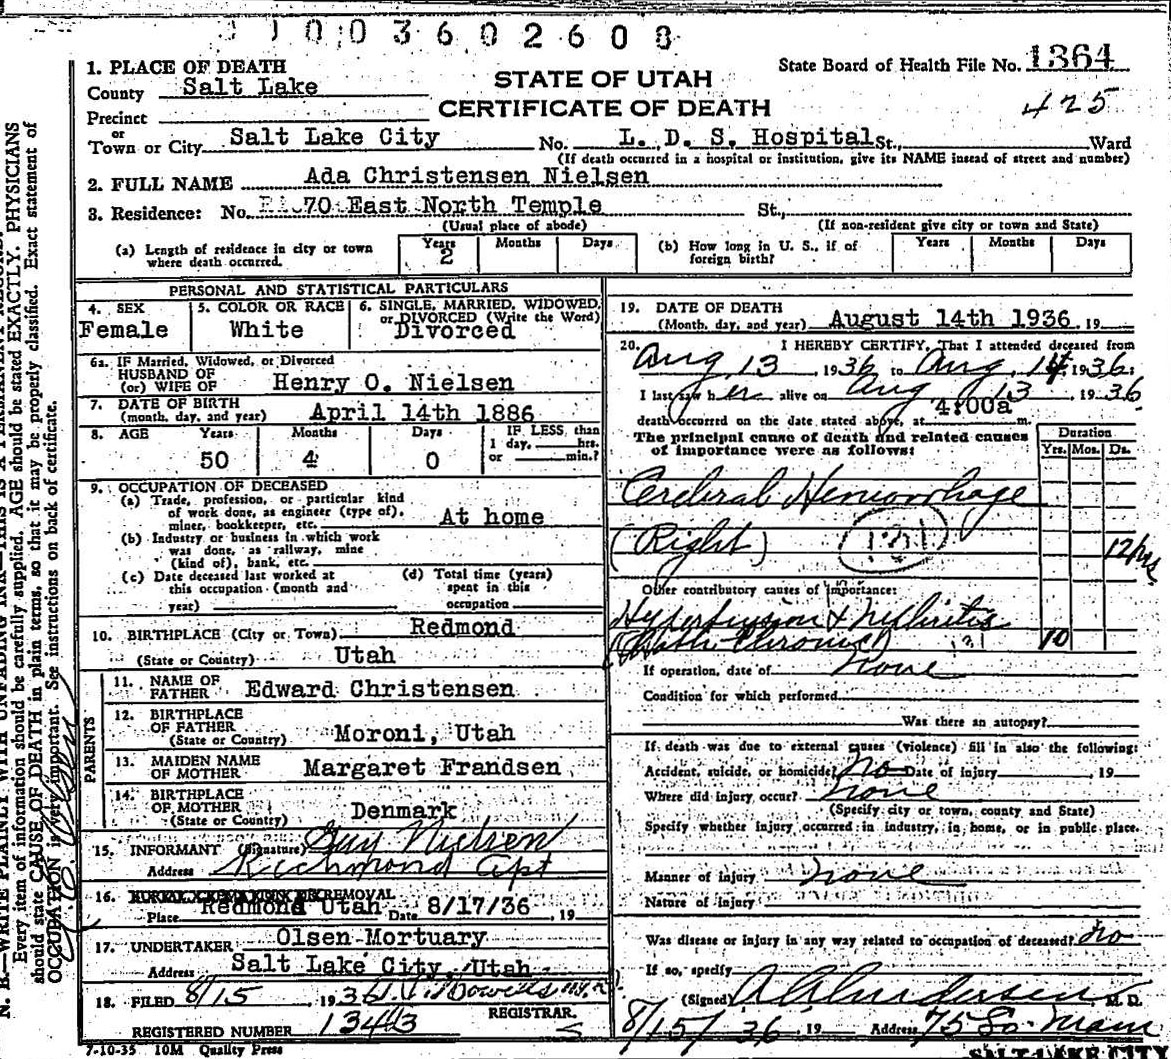 1003602608
1. PLACE OF DEATH
County Salt Lake
STATE OF UTAH
CERTIFICATE OF DEATH
State Board of Health File No. 1364
425
Precinct
or
Town or City Salt Lake City No. L. D. S. Hospital St., Ward
(If death occurred in a hospital or institution, give its NAME instead of street and number)
2. FULL NAME Ada Christensen Nielsen
3. Residence: No. 70 East North Temple St.,
(Usual place of abode) (If non-resident give city or town and State)
(a) Length of residence in city or town where death occurred. Years 2 Months Days (b) How long in U. S., if of foreign birth? Years Months Days
PERSONAL AND STATISTICAL PARTICULARS
4. SEX Female
5. COLOR OR RACE White
6. SINGLE, MARRIED, WIDOWED, or DIVORCED (Write the Word) Divorced
6a. IF Married, Widowed, or Divorced
HUSBAND OF
(or) WIFE OF Henry O. Nielsen
7. DATE OF BIRTH
(month, day, and year) April 14th 1886
8. AGE Years 50 Months 4 Days 0 IF LESS than 1 day, hrs. or min.?
9. OCCUPATION OF DECEASED
(a) Trade, profession, or particular kind
of work done, as engineer (type of),
miner, bookkeeper, etc. At home
(b) Industry or business in which work
was done, as railway, mine
(kind of), bank, etc.
(c) Date deceased last worked at
this occupation (month and
year)
(d) Total time (years)
spent in this
occupation
10. BIRTHPLACE (City or Town) Redmond
(State or Country) Utah
PARENTS
11. NAME OF
FATHER Edward Christensen
12. BIRTHPLACE
OF FATHER
(State or Country) Moroni, Utah
13. MAIDEN NAME
OF MOTHER Margaret Frandsen
14. BIRTHPLACE
OF MOTHER
(State or Country) Denmark
15. INFORMANT (Signature) Guy Nielsen
Address Richmond Apt
16. REMOVAL
Place Redmond Utah Date 8/17/36, 19
17. UNDERTAKER Olsen Mortuary
Address Salt Lake City, Utah
18. FILED 8/15, 1936
REGISTRAR.
REGISTERED NUMBER 1343
7-10-35 10M Quality Press
19. DATE OF DEATH
(Month, day, and year) August 14th 1936, 19
20. I HEREBY CERTIFY, That I attended deceased from
Aug 13, 1936 to Aug. 14, 1936.
I last saw her alive on Aug 13, 1936
death occurred on the date stated above, at 4:00a m.
The principal cause of death and related causes
of importance were as follows:
Duration
Yrs. Mos. Ds.
Cerebral Hemorrhage
(Right) (131) 12 hrs
Other contributory causes of importance:
Hypertension & Nephritis
(Both Chronic) 131 10
If operation, date of none
Condition for which performed
Was there an autopsy?
If death was due to external causes (violence) fill in also the following:
Accident, suicide, or homicide? no Date of injury, 19
Where did injury occur? none
(Specify city or town, county and State)
Specify whether injury occurred in industry, in home, or in public place.
Manner of injury none
Nature of injury
Was disease or injury in any way related to occupation of deceased? no
If so, specify
(Signed) M. D.
8/15/36, 19 Address 75 So. Main
SALT LAKE CITY
N. B.—WRITE PLAINLY WITH UNFADING INK—THIS IS A PERMANENT RECORD.
Every item of information should be carefully supplied. AGE should be stated EXACTLY. PHYSICIANS
should state CAUSE OF DEATH in plain terms, so that it may be properly classified. Exact statement of
OCCUPATION is very important. See instructions on back of certificate.